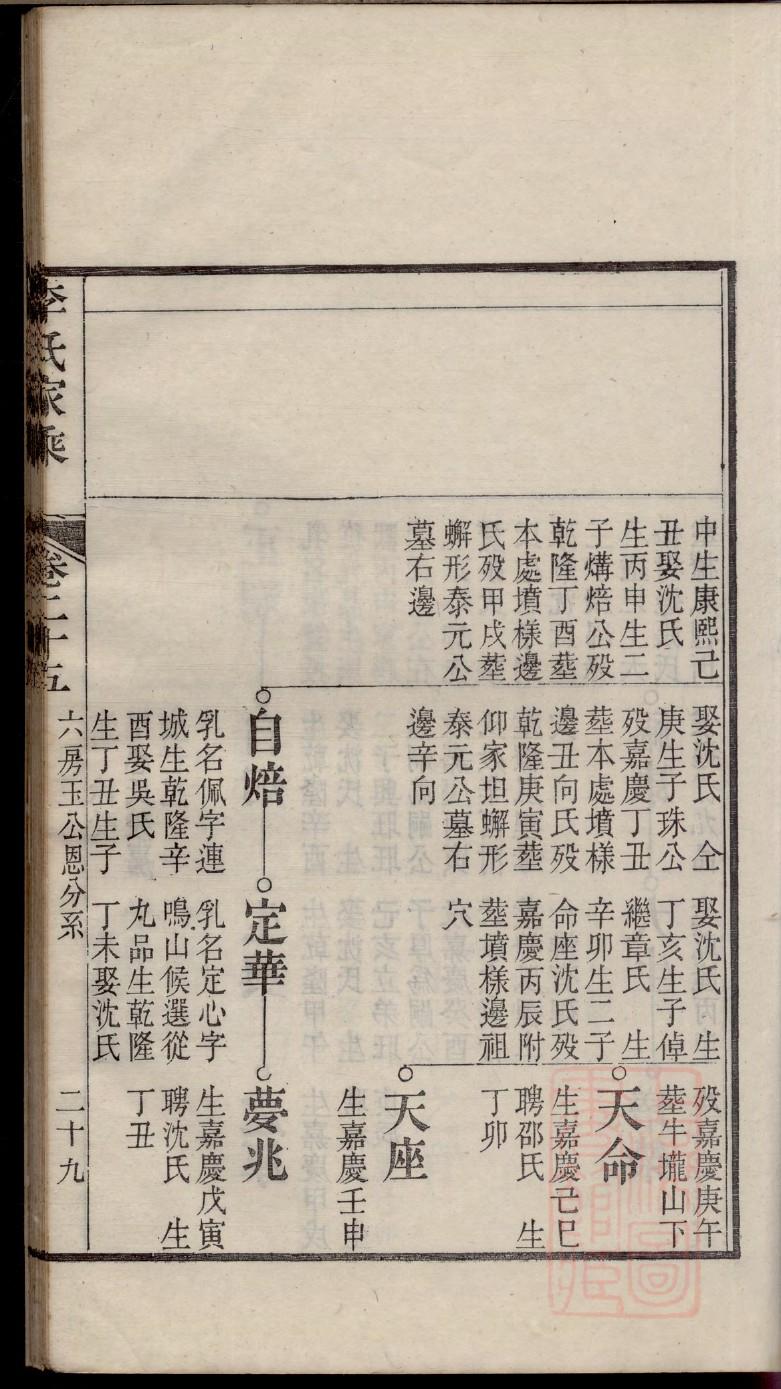 中生康熙己
丑娶沈氏
生丙申生二
子煹焙公殁
乾隆丁酉塟
本處墳樣邊
氏殁甲戌塟
蠏形泰元公
墓右邊
娶沈氏　仝
庚生子珠公
殁嘉慶丁丑
塟本處墳樣
邊丑向氏殁
乾隆庚寅塟
仰家坦蠏形
泰元公墓右
邊辛向
自焙
乳名佩字連
城生乾隆辛
酉娶吳氏
生丁丑生子
娶沈氏　生
丁亥生子倬
繼章氏　生
辛卯生二子
命座沈氏殁
嘉慶丙辰附
塟墳樣邊祖
穴
定華
乳名定心字
鳴山候選從
九品生乾隆
丁未娶沈氏
殁嘉慶庚午
塟牛壠山下
天命
生嘉慶己巳
聘邵氏　生
丁卯
天座
生嘉慶壬申
夢兆
生嘉慶戊寅
聘沈氏　生
丁丑
李氏家乘
卷二十五
六房玉公恩分系
二十九